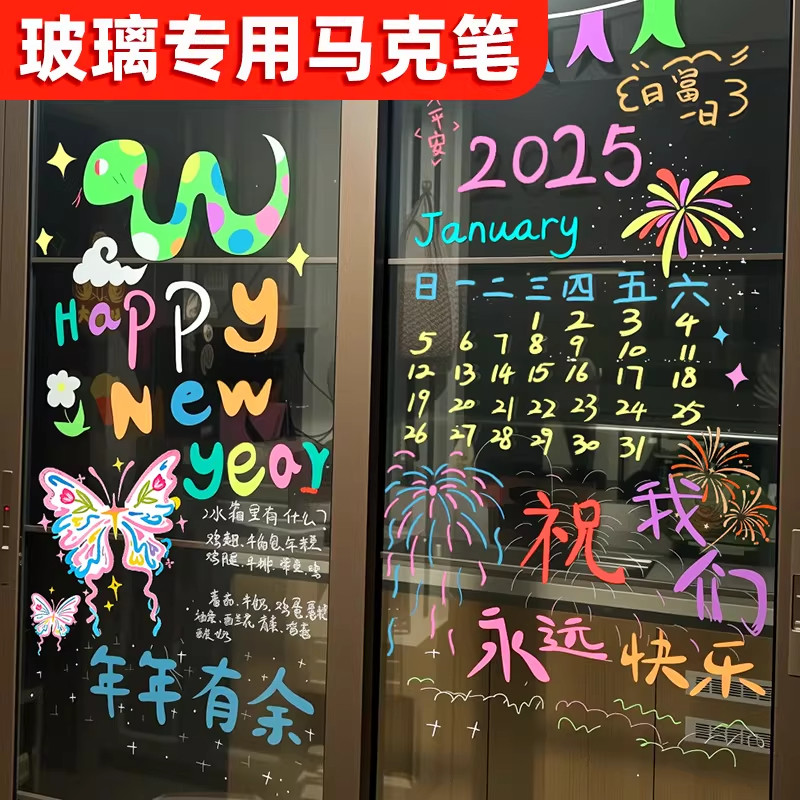 玻璃专用马克笔
日富
一日
平安
2025
January
日 一 二 三 四 五 六
1 2 3 4
5 6 7 8 9 10 11
12 13 14 15 16 17 18
19 20 21 22 23 24 25
26 27 28 29 30 31
Happy
New
year
冰箱里有什么?
鸡翅、牛肉包、年糕
鸡腿、牛排
番茄、牛奶、鸡蛋
西兰花
酸奶
年年有余
祝我们
永远快乐